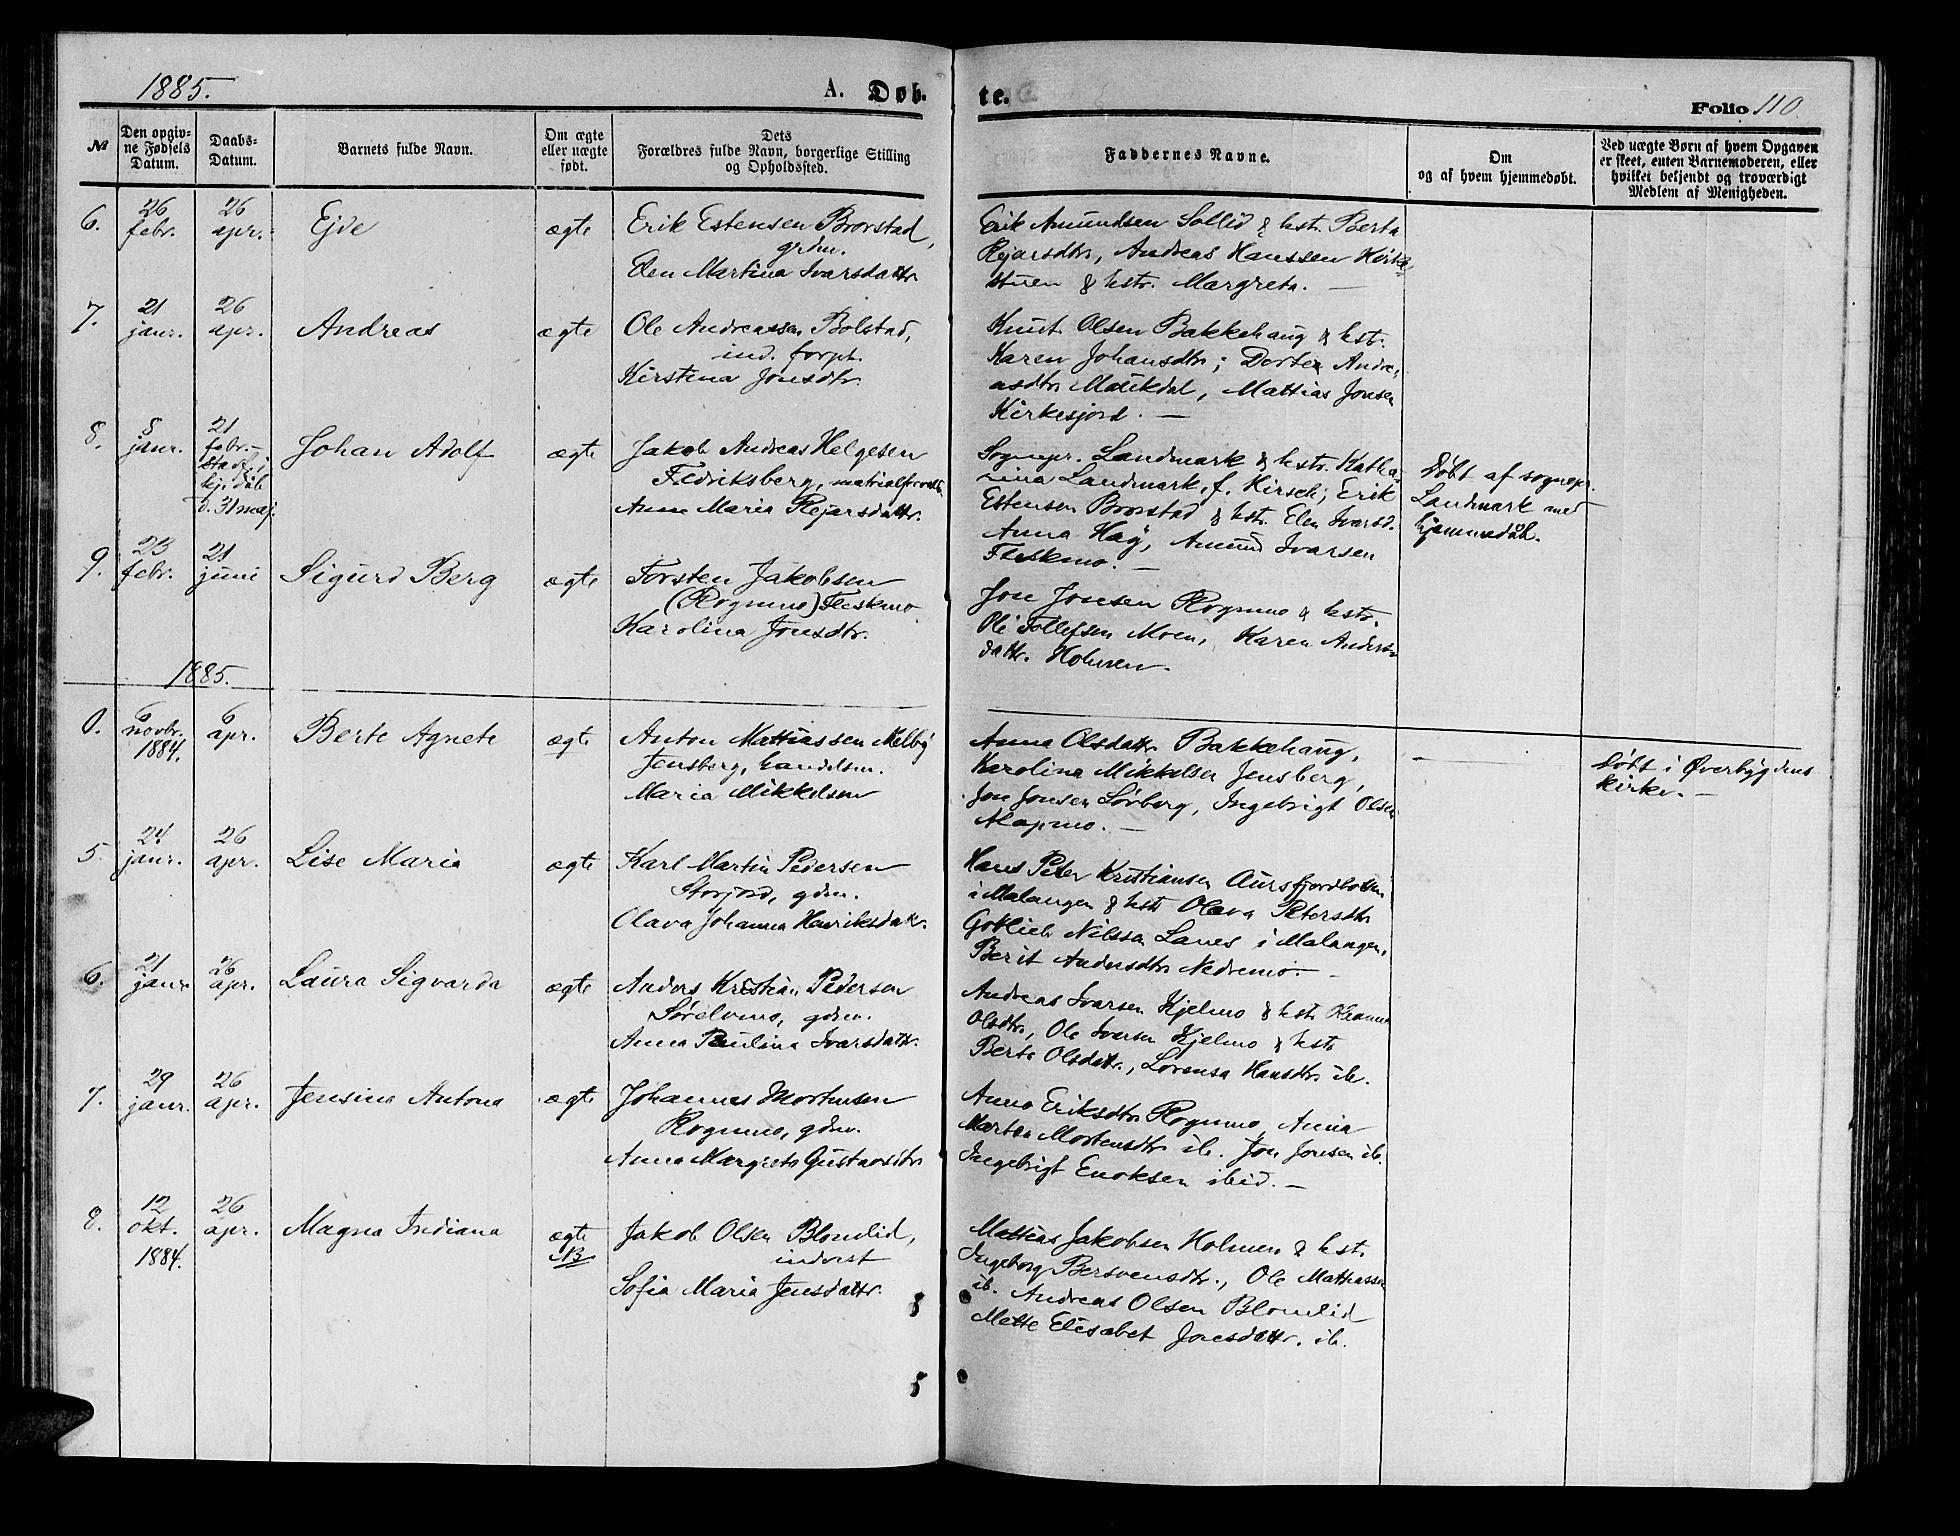 1885.
A. Døb-
te.
Folio 110.
№
Den opgiv-
ne Fødsels
Datum.
Daabs-
Datum.
Barnets fulde Navn.
Om ægte
eller uægte
født.
Dets
Forældres fulde Navn, borgerlige Stilling
og Opholdssted.
Faddernes Navne.
Om
og af hvem hjemmedøbt.
Ved uægte Børn af hvem Opgaven
er skeet, enten Barnemoderen, eller
hvilket bekjendt og troværdigt
Medlem af Menigheden.
6.
26
febr.
26
apr.
Ejde
ægte
Erik Estensen Brorstad,
grdm.
Elen Martina Ivarsdattr.
Erik Amundsen Sollid & kstr. Berta
Pejarsdtr, Andreas Hanssen Kirke-
stuen & kstr. Margreta. —
7.
21
janr.
26
apr.
Andreas
ægte
Ole Andreassen Bolstad,
ind. forp.
Kirstina Jonsdtr.
Knut Olsen Bakkehaug & kstr.
Karen Johansdtr; Dortea Andre-
asdtr Maukdal, Mattias Jonsen
Kirkesjord. —
8.
8
janr.
21
febr. -
stadf. i
kj. dåb
d. 31 maj.
Johan Adolf
ægte
Jakob Andreas Helgesen
Fredriksberg, matrialforvalt.
Anne Maria Pejarsdattr.
Sognepr. Landmark & kstr. Katha-
rina Landmark, f. Hirsch; Erik
Estensen Brorstad & kstr. Elen Ivarsd.
Anna Høy, Amund Ivarsen
Fleskmo. —
Døbt af sognepr.
Landmark med
hjemmedåb.
9.
23
febr.
21
juni
Sigurd Berg
ægte
Torsten Jakobsen
(Rognmo) Fleskmo
Karolina Jonsdtr.
Jon Jonsen Rognmo & kstr.
Ole Tollefsen Moen, Karen Anders-
dattr. Holmen.
1885.
6
novbr.
1884.
6
apr.
Berte Agnete
ægte
Anton Mattiassen Melby
Jensberg, handelsm.
Maria Mikkelsen
Anna Olsdattr Bakkehaug,
Karolina Mikkelsen Jensberg,
Jon Jonsen Sørberg, Ingebrigt Olsen
Alapmo. —
Døbt i Øverbygdens
kirke. —
5.
24
janr.
26
apr.
Lise Maria
ægte
Karl Martin Pedersen
Storjord, gdm.
Olava Johanna Henriksdatr.
Hans Peter Kristiansen Aursfjordbotten
i Malangen & kstr Olava Petersdtr
Gotlieb Nilssen Lanes i Malangen,
Berit Andersdtr Nedremo. —
6.
21
janr
26
apr.
Laura Sigvarda
ægte
Anders Kristian Pedersen
Sørelvmo, gdm.
Anna Paulina Ivarsdattr.
Andreas Ivarsen Kjelmo & kstr Oleanna
Olsdtr, Ole Ivarsen Kjelmo & kstr
Berte Olsdattr., Lorensa Hansdtr ib.
7.
29
janr.
26
apr.
Jensina Antona
ægte
Johannes Mortensen
Rognmo, gdm.
Anna Margrete Gustavsdtr
Anna Eriksdtr Rognmo, Anna
Marta Mortensdtr ib. Jon Jonsen ib.
Ingebrigt Enoksen ibid. —
8.
12
okt.
1884.
26
apr.
Magna Indiana
ægte
NB
Jakob Olsen Blomlid,
inderst
Sofia Maria Jensdattr.
Mattias Jakobsen Holmen & kst.
Ingeborg Bersvensdtr., Ole Mathiassen
ib. Andreas Olsen Blomlid
Mette Elisabet Jonsdattr. ib.